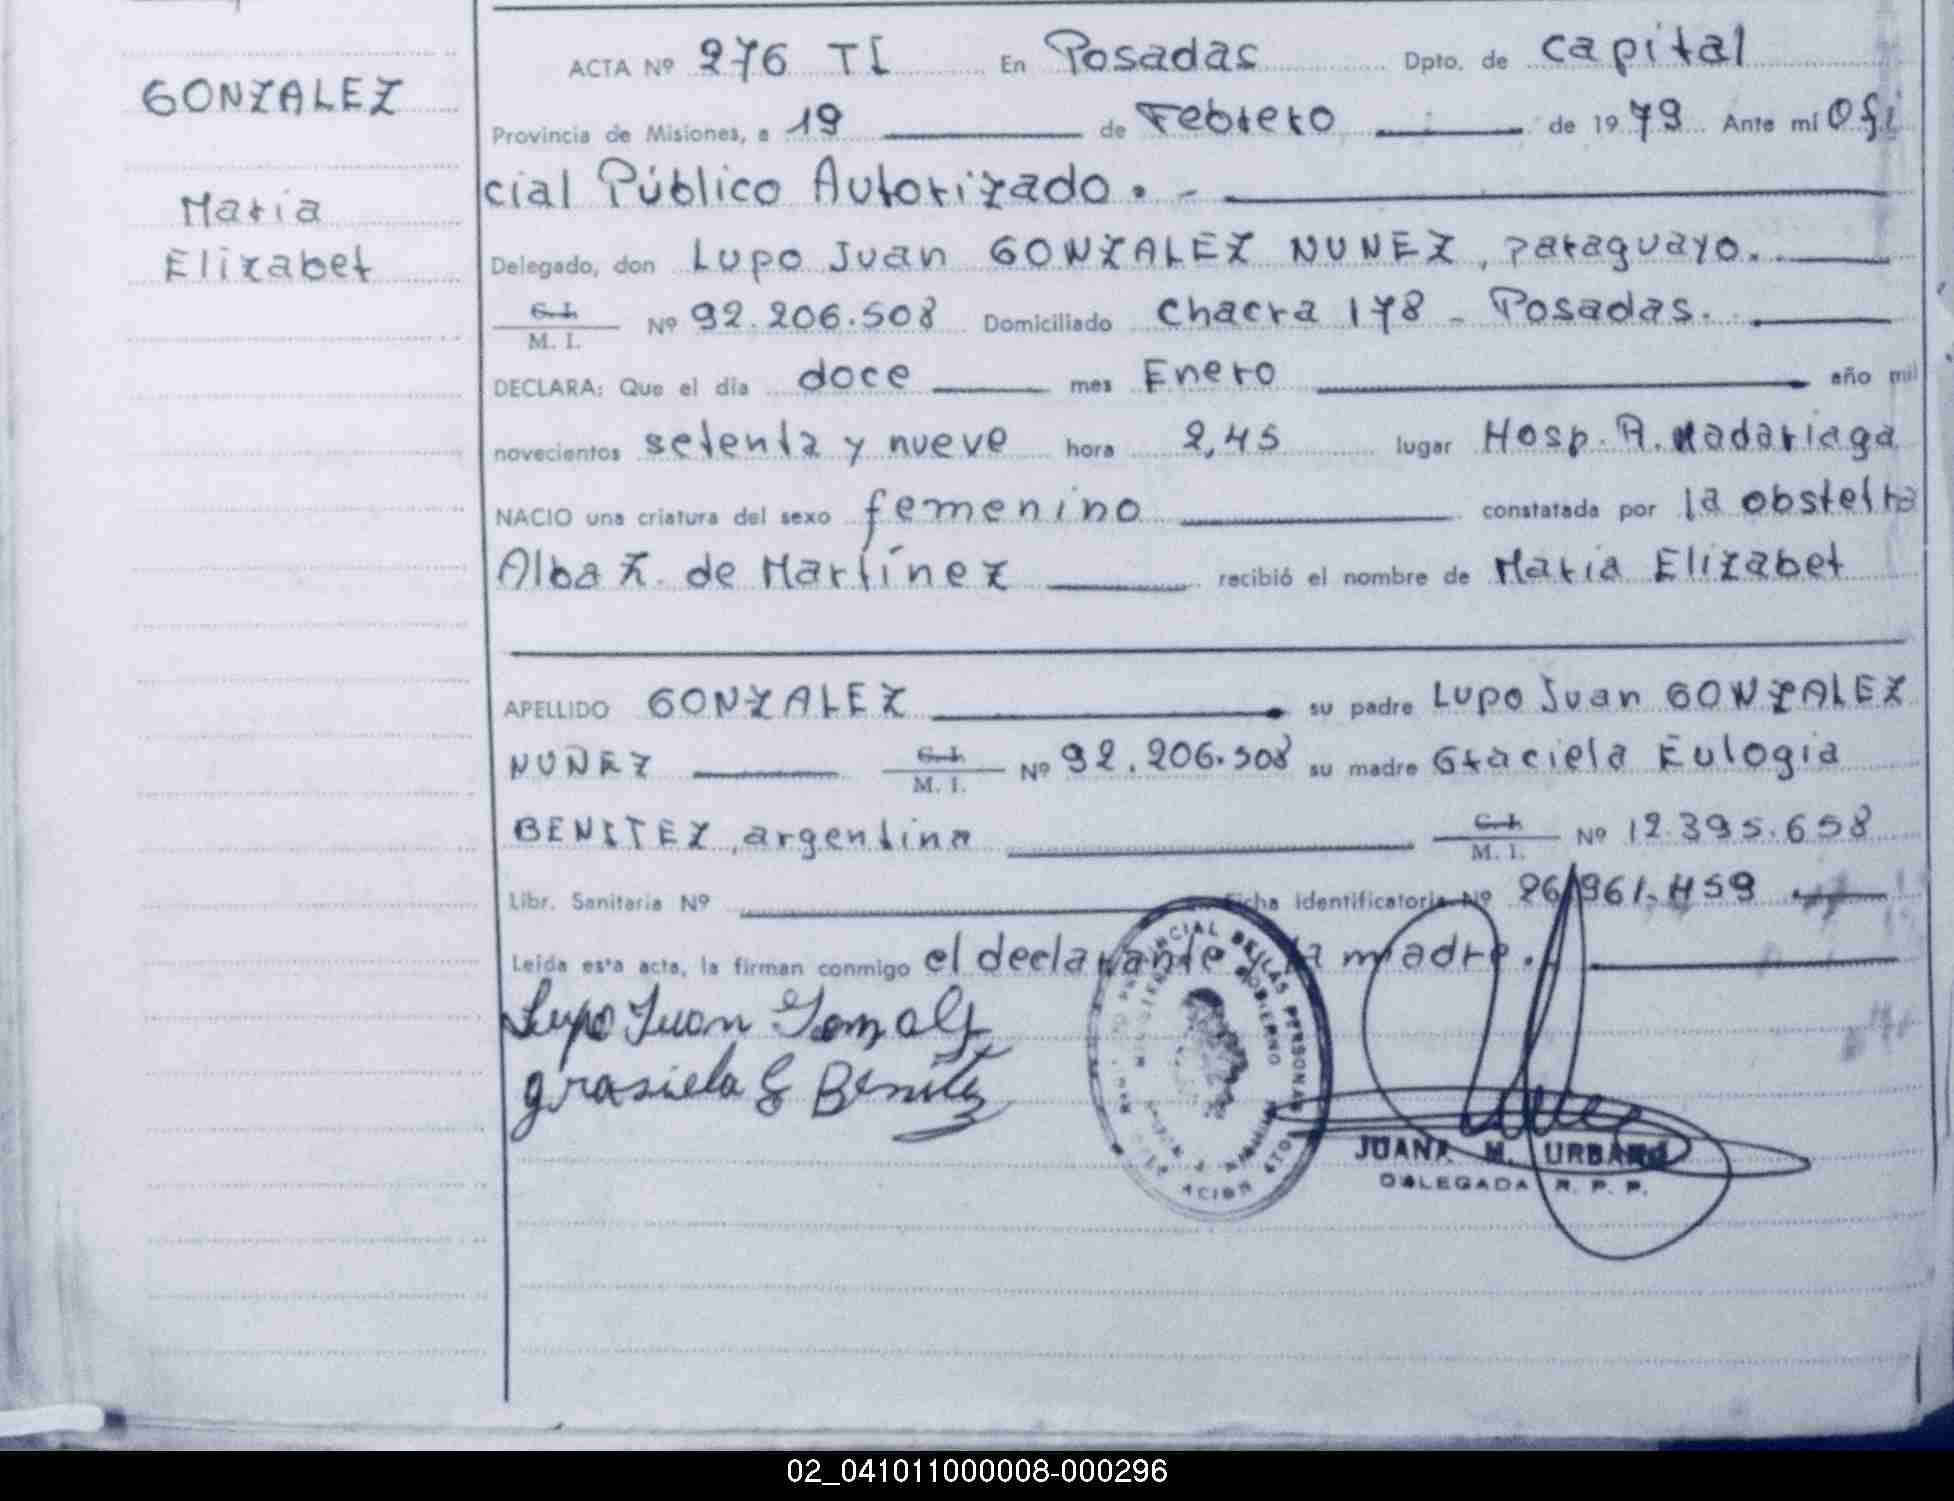 GONZALEZ
Maria
Elizabet
ACTA Nº 276 TI En Posadas Dpto. de capital
Provincia de Misiones, a 19 de Febrero de 1979 Ante mí Ofi
cial Público Autorizado.-
Delegado, don Lupo Juan GONZALEZ NUNEZ, paraguayo.
C.I.
M. I. Nº 92.206.508 Domiciliado Chacra 178 - Posadas.
DECLARA: Que el día doce mes Enero año mil
novecientos setenta y nueve hora 2,45 lugar Hosp. R. Madariaga
NACIO una criatura del sexo femenino constatada por la obstetra
Alba Z. de Martínez recibió el nombre de Maria Elizabet
APELLIDO GONZALEZ su padre Lupo Juan GONZALEZ
NUÑEZ C.I. M. I. Nº 92.206.508 su madre Graciela Eulogia
BENITEZ, argentina C.I. M. I. Nº 12.395.658
Libr. Sanitaria Nº Ficha identificatoria Nº 26.961.459
Leída esta acta, la firman conmigo el declarante y la madre.
Lupo Juan Gonzalez
grasiela E Benitez
PROVINCIAL DE LAS PERSONAS
JUANA M. URBANO
DELEGADA R. P. P.
02_041011000008-000296